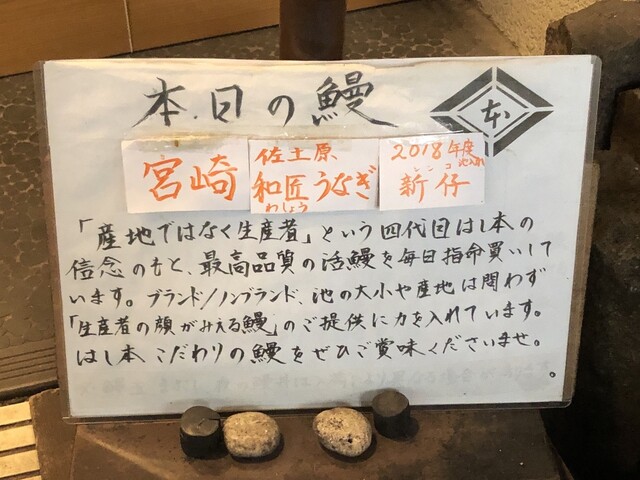 本日の鰻
本
宮崎
佐土原
和匠うなぎ
わしょう
2018年度
池入れ
シンコ
新仔
「産地ではなく生産者」という四代目はし本の
信念のもと、最高品質の活鰻を毎日指命買いして
います。ブランド/ノンブランド、池の大小や産地は問わず
「生産者の顔がみえる鰻」のご提供に力を入れています。
はし本こだわりの鰻をぜひご賞味くださいませ。